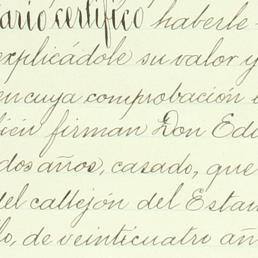 tario certifico haberle
explicádole su valor y
en cuya comprobación
bién firman Don Edu
dos años, casado, que
del callejón del Estan
lo, de veinticuatro añ